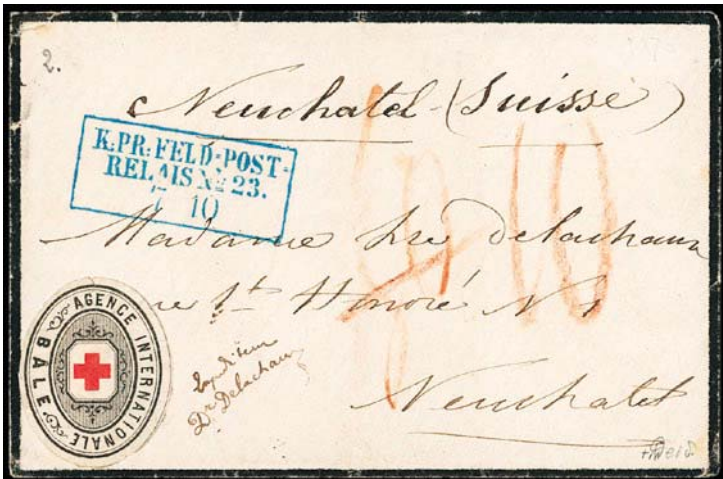 2.
Neuchatel (Suisse)
K:PR:FELD=POST=
RELAIS No 23.
7 10
10
Madame Delachaux
rue St Honoré N 1
AGENCE INTERNATIONALE
BALE
Expéditeur
Dr Delachaux
Neuchatel